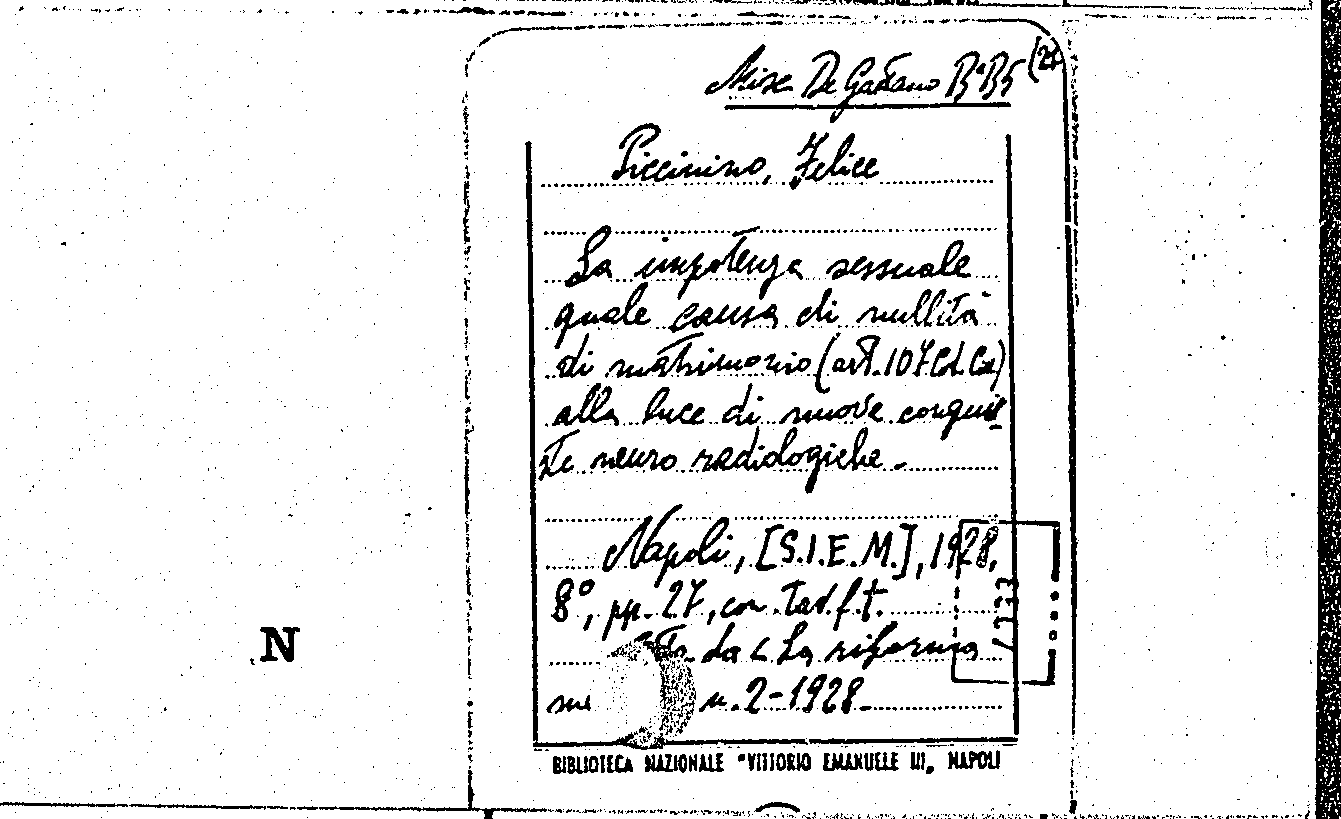 Misc. De Gaetano B.B5 (27
Piccinino, Felice
La impotenza sessuale
quale causa di nullità
di matrimonio (art. 107 Cd. Civ)
alla luce di nuove conqui
ste neuro radiologiche.
Napoli, [S.I.E.M.], 1928,
8°, pp. 27, con Tav. f. t.
da « La riforma
n. 2-1928.
N
BIBLIOTECA NAZIONALE "VITTORIO EMANUELE III„ NAPOLI